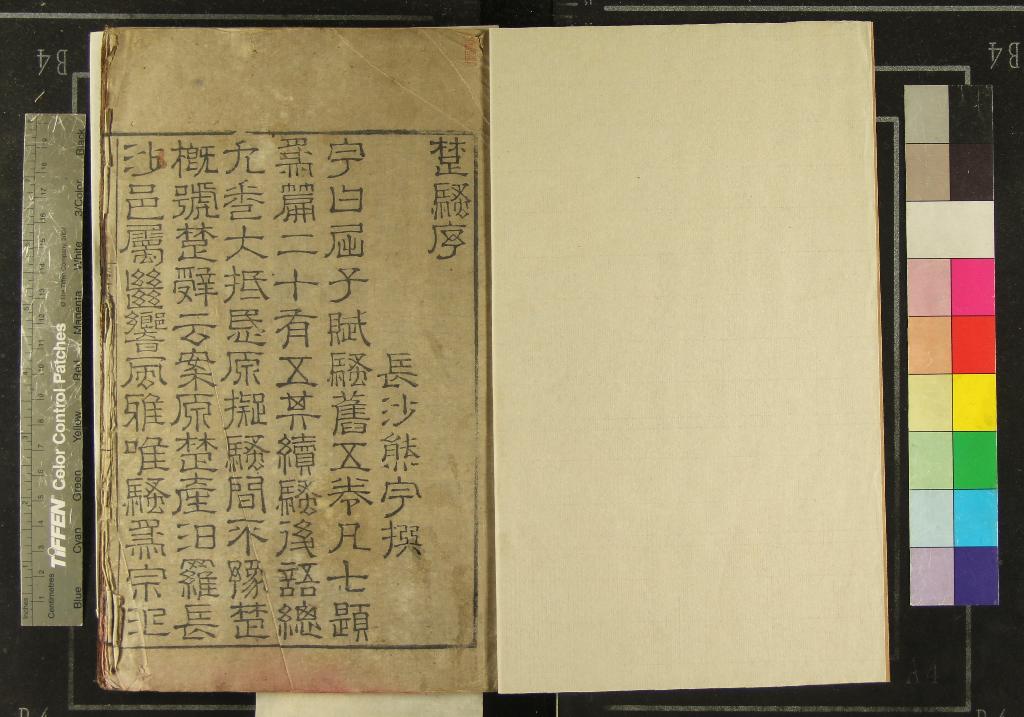 楚騷序
長沙熊宇撰
宇曰屈子賦騷舊五卷凡七題
爲篇二十有五其續騷後語總
九卷大抵屈原擬騷間不豫楚
槪號楚辭云案原楚產汨羅長
沙邑屬幽響風雅唯騷爲宗
B4
B4
TIFFEN Color Control Patches
© The Tiffen Company, 2007
Blue Cyan Green Yellow Red Magenta White 3/Color Black
Inches
Centimetres